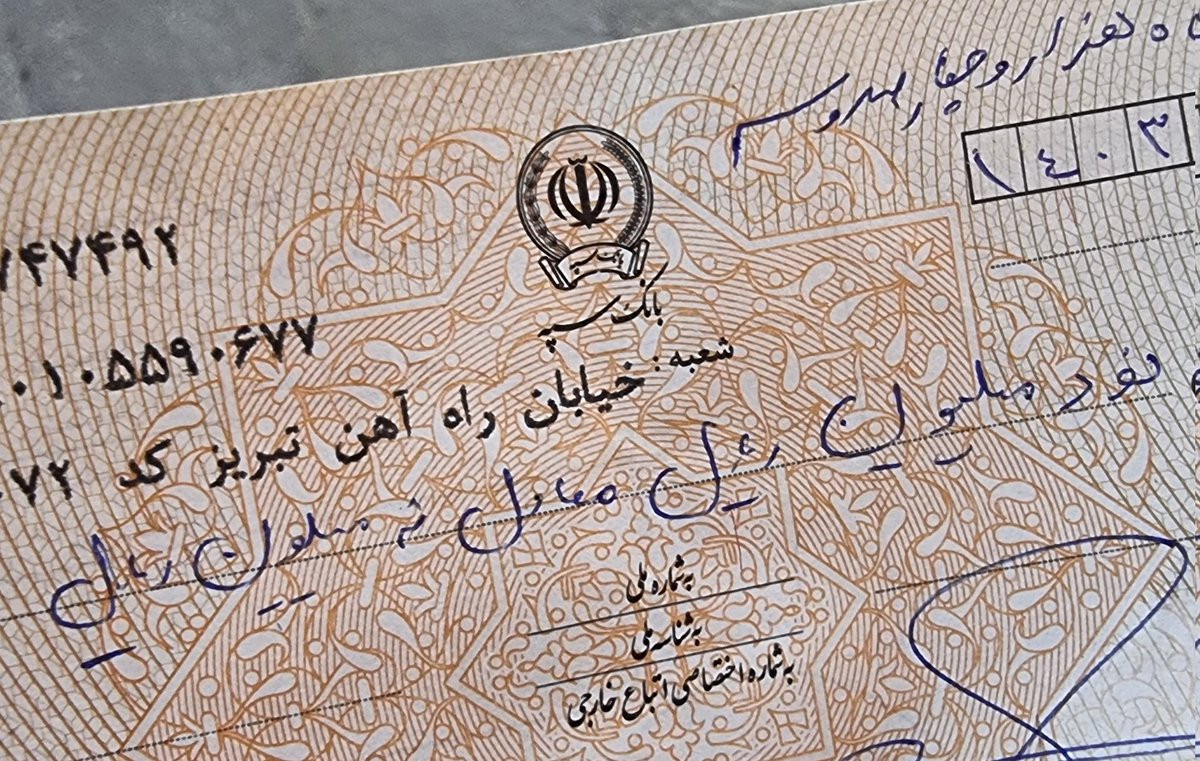 هزار و چهارصد و سه
۱۴۰۳
بانک سپه
بانک سپه
۷۴۷۴۹۲
۰۱۰۵۵۹۰۶۷۷
شعبه: خیابان راه آهن تبریز کد ۷۲
نود میلیون ریال معادل نه میلیون ریال
به شماره ملی
به شناسه ملی
به شماره اختصاصی اتباع خارجی